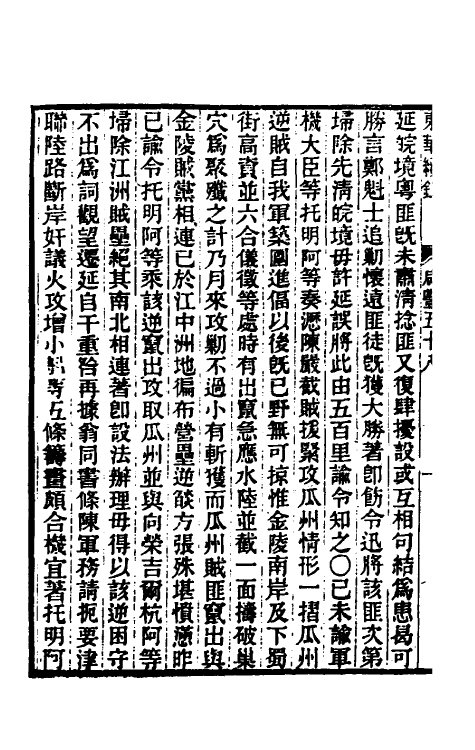 東華續錄 咸豐五十八 一
延皖境粵匪旣未肅清捻匪又復肆擾設或互相句結爲患曷可
勝言鄭魁士追勦懷遠匪徒旣獲大勝著卽飭令迅將該匪次第
埽除先清皖境毋許延誤將此由五百里諭令知之〇己未諭軍
機大臣等托明阿等奏瀝陳嚴截賊援緊攻瓜州情形一摺瓜州
逆賊自我軍築圍進偪以後旣已野無可掠惟金陵南岸及下蜀
街高資並六合儀徵等處時有出竄急應水陸並截一面擣破巢
穴爲聚殲之計乃月來攻勦不過小有斬獲而瓜州賊匪竄出與
金陵賊黨相連已於江中洲地徧布營壘逆燄方張殊堪憤懣昨
已諭令托明阿等乘該逆竄出攻取瓜州並與向榮吉爾杭阿等
埽除江洲賊壘絕其南北相連著卽設法辦理毋得以該逆困守
不出爲詞觀望遷延自干重咎再據翁同書條陳軍務請扼要津
聯陸路斷岸奸議火攻增小船專互條籌畫頗合機宜著托明阿